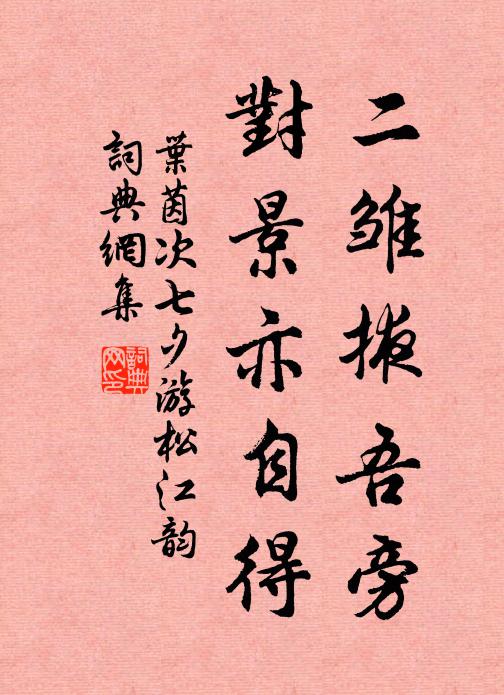 二雏掖吾旁
對景亦自得
葉茵次七夕游松江韵
詞典網集
詞典网印